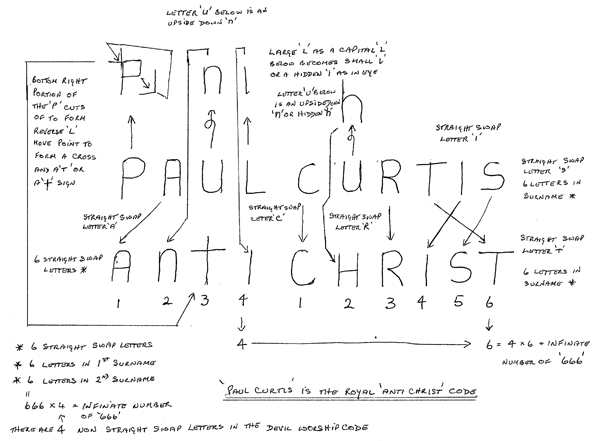 LETTER 'U' BELOW IS AN
UPSIDE DOWN 'N'
P
n
l
LARGE 'L' AS A CAPITAL 'L'
BELOW BECOMES SMALL 'L'
OR A HIDDEN 'I' AS IN EYE
BOTTOM RIGHT
PORTION OF
THE 'P' CUTS
OF TO FORM
REVERSE 'L'
MOVE POINT TO
FORM A CROSS
AND A 'T' OR
A '+' SIGN
LETTER 'U' BELOW
IS AN UPSIDE DOWN
'N' OR HIDDEN 'N'
h
STRAIGHT SWAP
LETTER 'I'
PAUL CURTIS
STRAIGHT SWAP
LETTER 'S'
6 LETTERS IN
SURNAME *
STRAIGHT SWAP
LETTER 'A'
STRAIGHT SWAP
LETER 'C'
STRAIGHT SWAP
LETTER 'R'
STRAIGHT SWAP
LETTER 'T'
6 LETTERS IN
SURNAME *
6 STRAIGHT SWAP
LETTERS *
AnTI CHRIST
1 2 3 4 1 2 3 4 5 6
4 6 = 4 × 6 = INFINATE
NUMBER OF '666'
* 6 STRAIGHT SWAP LETTERS
* 6 LETTERS IN 1ST SURNAME
* 6 LETTERS IN 2ND SURNAME
=
666 × 4 = INFINATE NUMBER
OF '666'
'PAUL CURTIS' IS THE ROYAL 'ANTI CHRIST' CODE
THERE ARE 4 NON STRAIGHT SWAP LETTERS IN THE DEVIL WORSHIP CODE